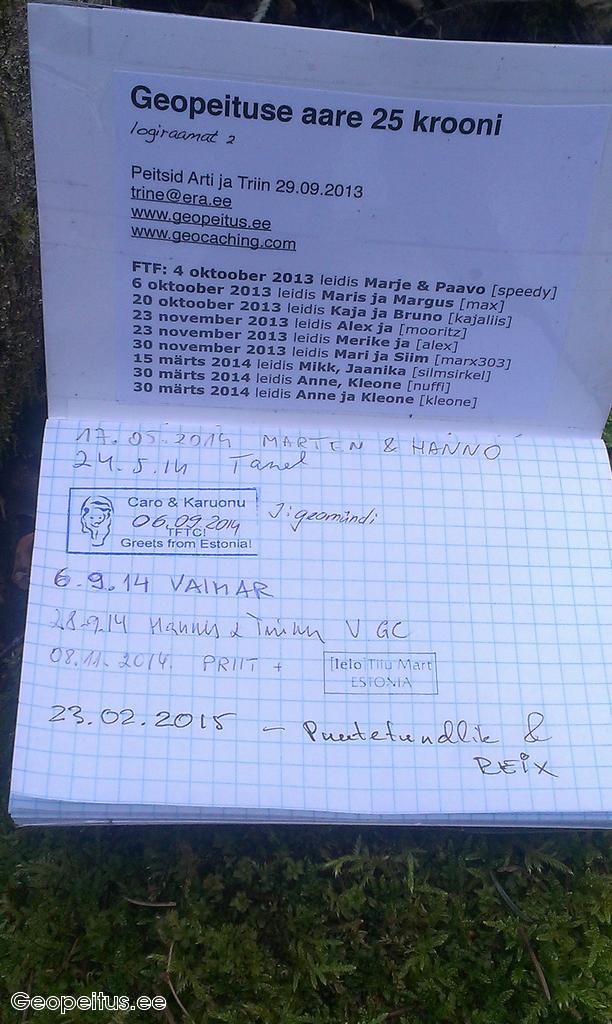 Geopeituse aare 25 krooni
logiraamat 2
Peitsid Arti ja Triin 29.09.2013
trine@era.ee
www.geopeitus.ee
www.geocaching.com
FTF: 4 oktoober 2013 leidis Marje & Paavo [speedy]
6 oktoober 2013 leidis Maris ja Margus [max]
20 oktoober 2013 leidis Kaja ja Bruno [kajaliis]
23 november 2013 leidis Alex ja [mooritz]
23 november 2013 leidis Merike ja [alex]
30 november 2013 leidis Mari ja Siim [marx303]
15 märts 2014 leidis Mikk, Jaanika [silmsirkel]
30 märts 2014 leidis Anne, Kleone [nuffi]
30 märts 2014 leidis Anne ja Kleone [kleone]
17.05.2014 MARTEN & HANNO
24.5.14 Tanel
Caro & Karuonu
06.09.2014
TFTC!
Greets from Estonia!
J: geomündi
6.9.14 VAIMAR
28.9.14 Hannus & V GC
08.11.2014. PRIIT +
[lelo] Tiiu Mart
ESTONIA
23.02.2015 - Puutetundlik &
REiX
Geopeitus.ee